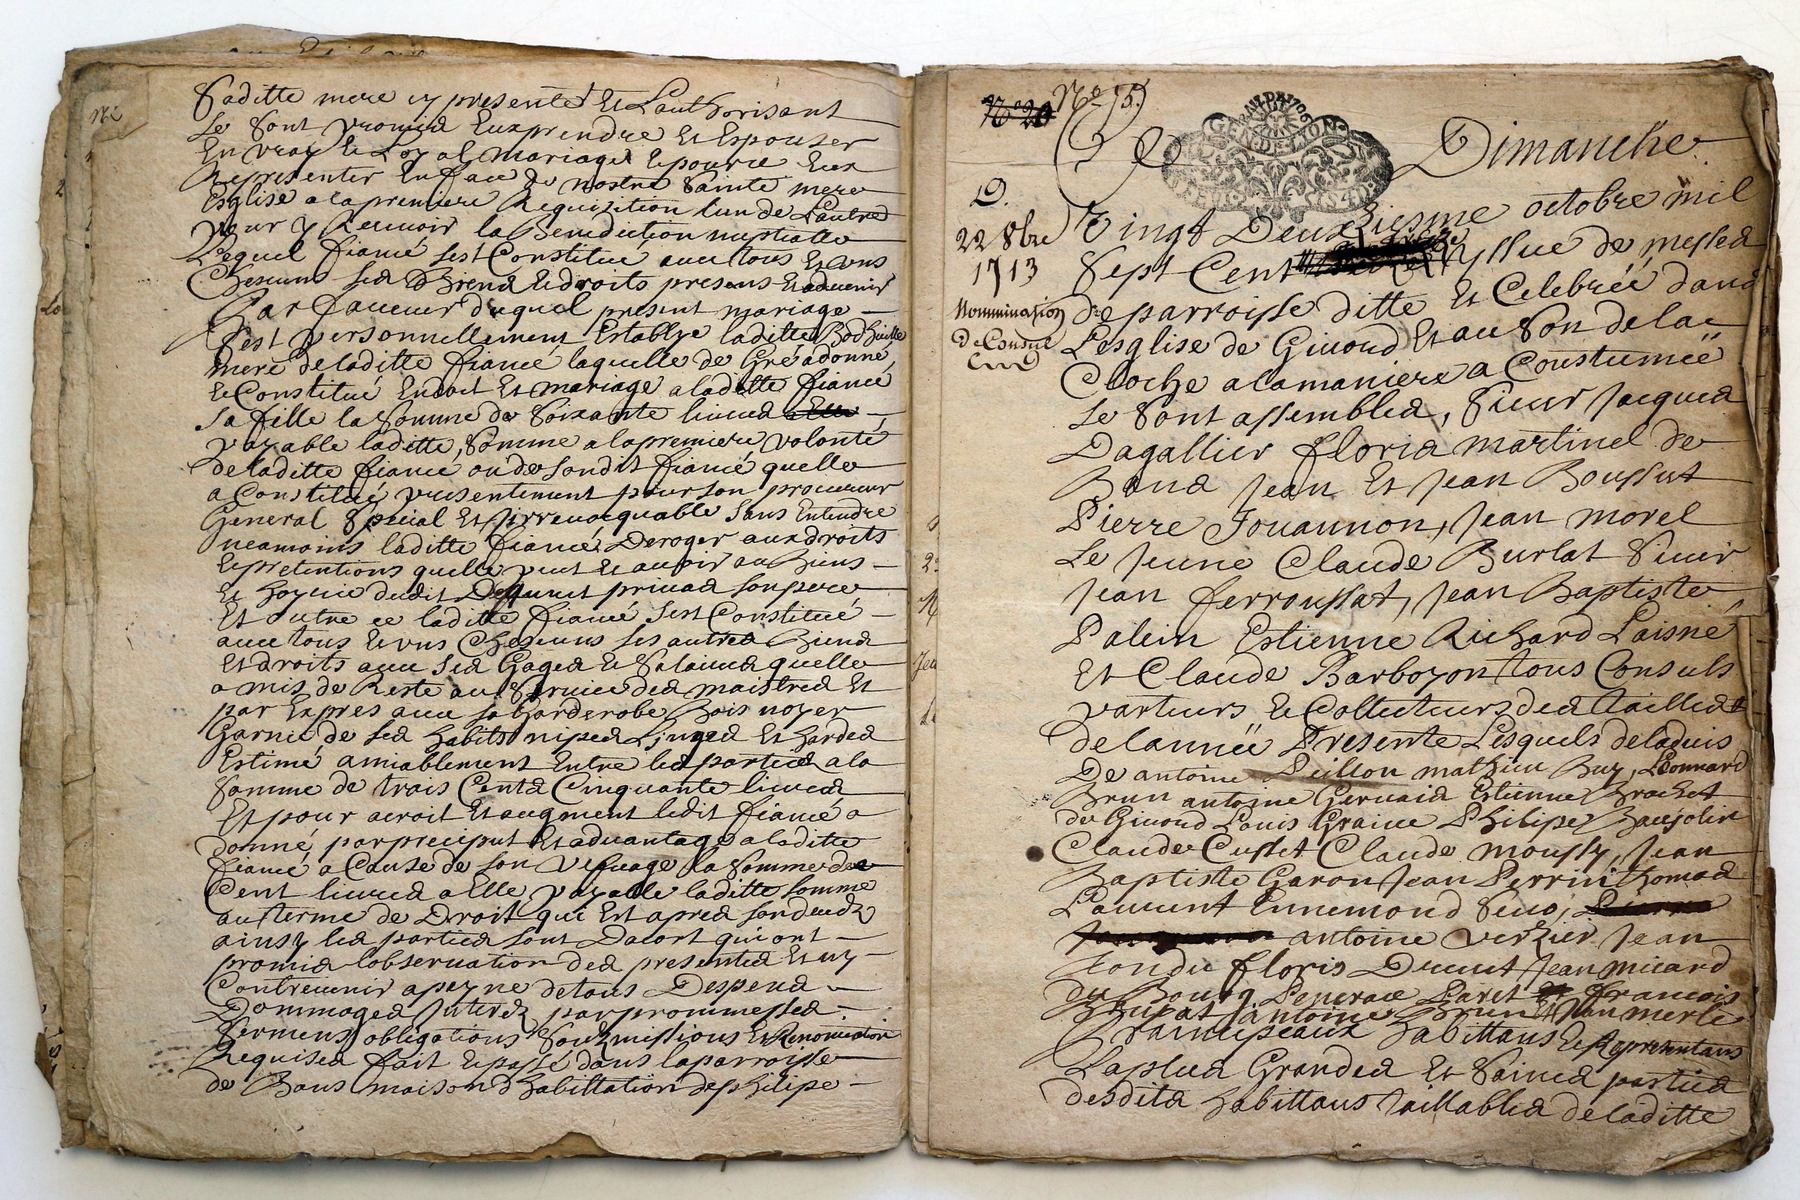 saditte mere cy presente Et Lauthorisant
Se sont promis Eux prendre Et Espouser
En vray Et Loyal mariage Et pour ce Eux
Representer En face de nostre Sainte mere
Esglise a la premiere Requisition lun de Lautre
pour y Recevoir la Benediction nuptialle
Lequel fiancé sest Constitué avec tous Et uns
Chescuns ses Biens Et droits presens Et advenir
Par faveur duquel present mariage
sest personnellement Establye laditte
mere de laditte fiancé laquelle de Gré a donné
Et Constitué En doit Et mariage a laditte fiancé
sa fille la Somme de Soixante livres
payable laditte Somme a la premiere volonté
de laditte fiance ou de sondit fiancé quelle
a Constitué presentement pour son procureur
General Special Et jrrevocquable sans Entendre
neamoins laditte fiancé Deroger aux droits
Et pretentions quelle peut Et avoir au Biens
Et hoyrie dudit Deffunt son pere
Et outre ce laditte fiancé sest Constitué
avec tous Et uns Chescuns ses autres Biens
Et droits avec ses Gages Et Salaires quelle
a mis de Reste au Service des maistres Et
par Expres avec sa Garderobe Bois noyer
Garnie de ses habits nipes Linges Et hardes
Estimé amiablement Entre les parties a la
somme de trois Cents Cinquante livres
Et pour acroit Et augment ledit fiancé a
donné par preciput Et advantage a laditte
fiancé a Cause de son la Somme de
Cent livres a Elle payable laditte somme
au terme de Droit qui Est apres son deceds
ainsy les parties sont Dacort qui ont
promis lobservation des presentes Et ny
Contrevenir a peyne de tous Despens
Dommages Interez par prommesses
sermens obligations Soubmissions Et Renonciation
Requises fait Et passé dans la parroisse
de Bans maison dhabittation de philipe
N° 15
GEN. DE LYON
Ce Dimanche
22 8bre
1713
Nommination
de Consuls
Vingt Deuxiesme octobre mil
Sept Cent yssue de messes
de parroisse ditte Et Celebréé dans
Lesglise de Givord Et au Son de la
Cloche a la maniere a Coustumeé
Se Sont assembles, Sieur Jacques
Dagallier floris martinel de
Bans Jean Et Jean Boussut
Pierre Jouannon, Jean morel
Le Jeune Claude Burlat Sieur
Jean ferroussat, Jean Baptiste
Palein Estienne Richard Laisné
Et Claude Barboyon tous Consuls
parteurs Et Collecteurs des Tailles
de lanneé Presente Lesquels de ladvis
De antoine Peillon mathieu Buy, Leonnard
Brun antoine Gervais Estienne Brachet
de Givord Louis Graive Philipe Baujolin
Claude Cusset Claude moussy, Jean
Baptiste Garon Jean Perrin Thomas
Laurent Ennemond
antoine Verzier Jean
floris Jean micard
du Bourg francois
antoine Brun Jean merle
principeaux habittans Et Representans
La plus Grandes Et Saines parties
desdits habittans Taillables de laditte